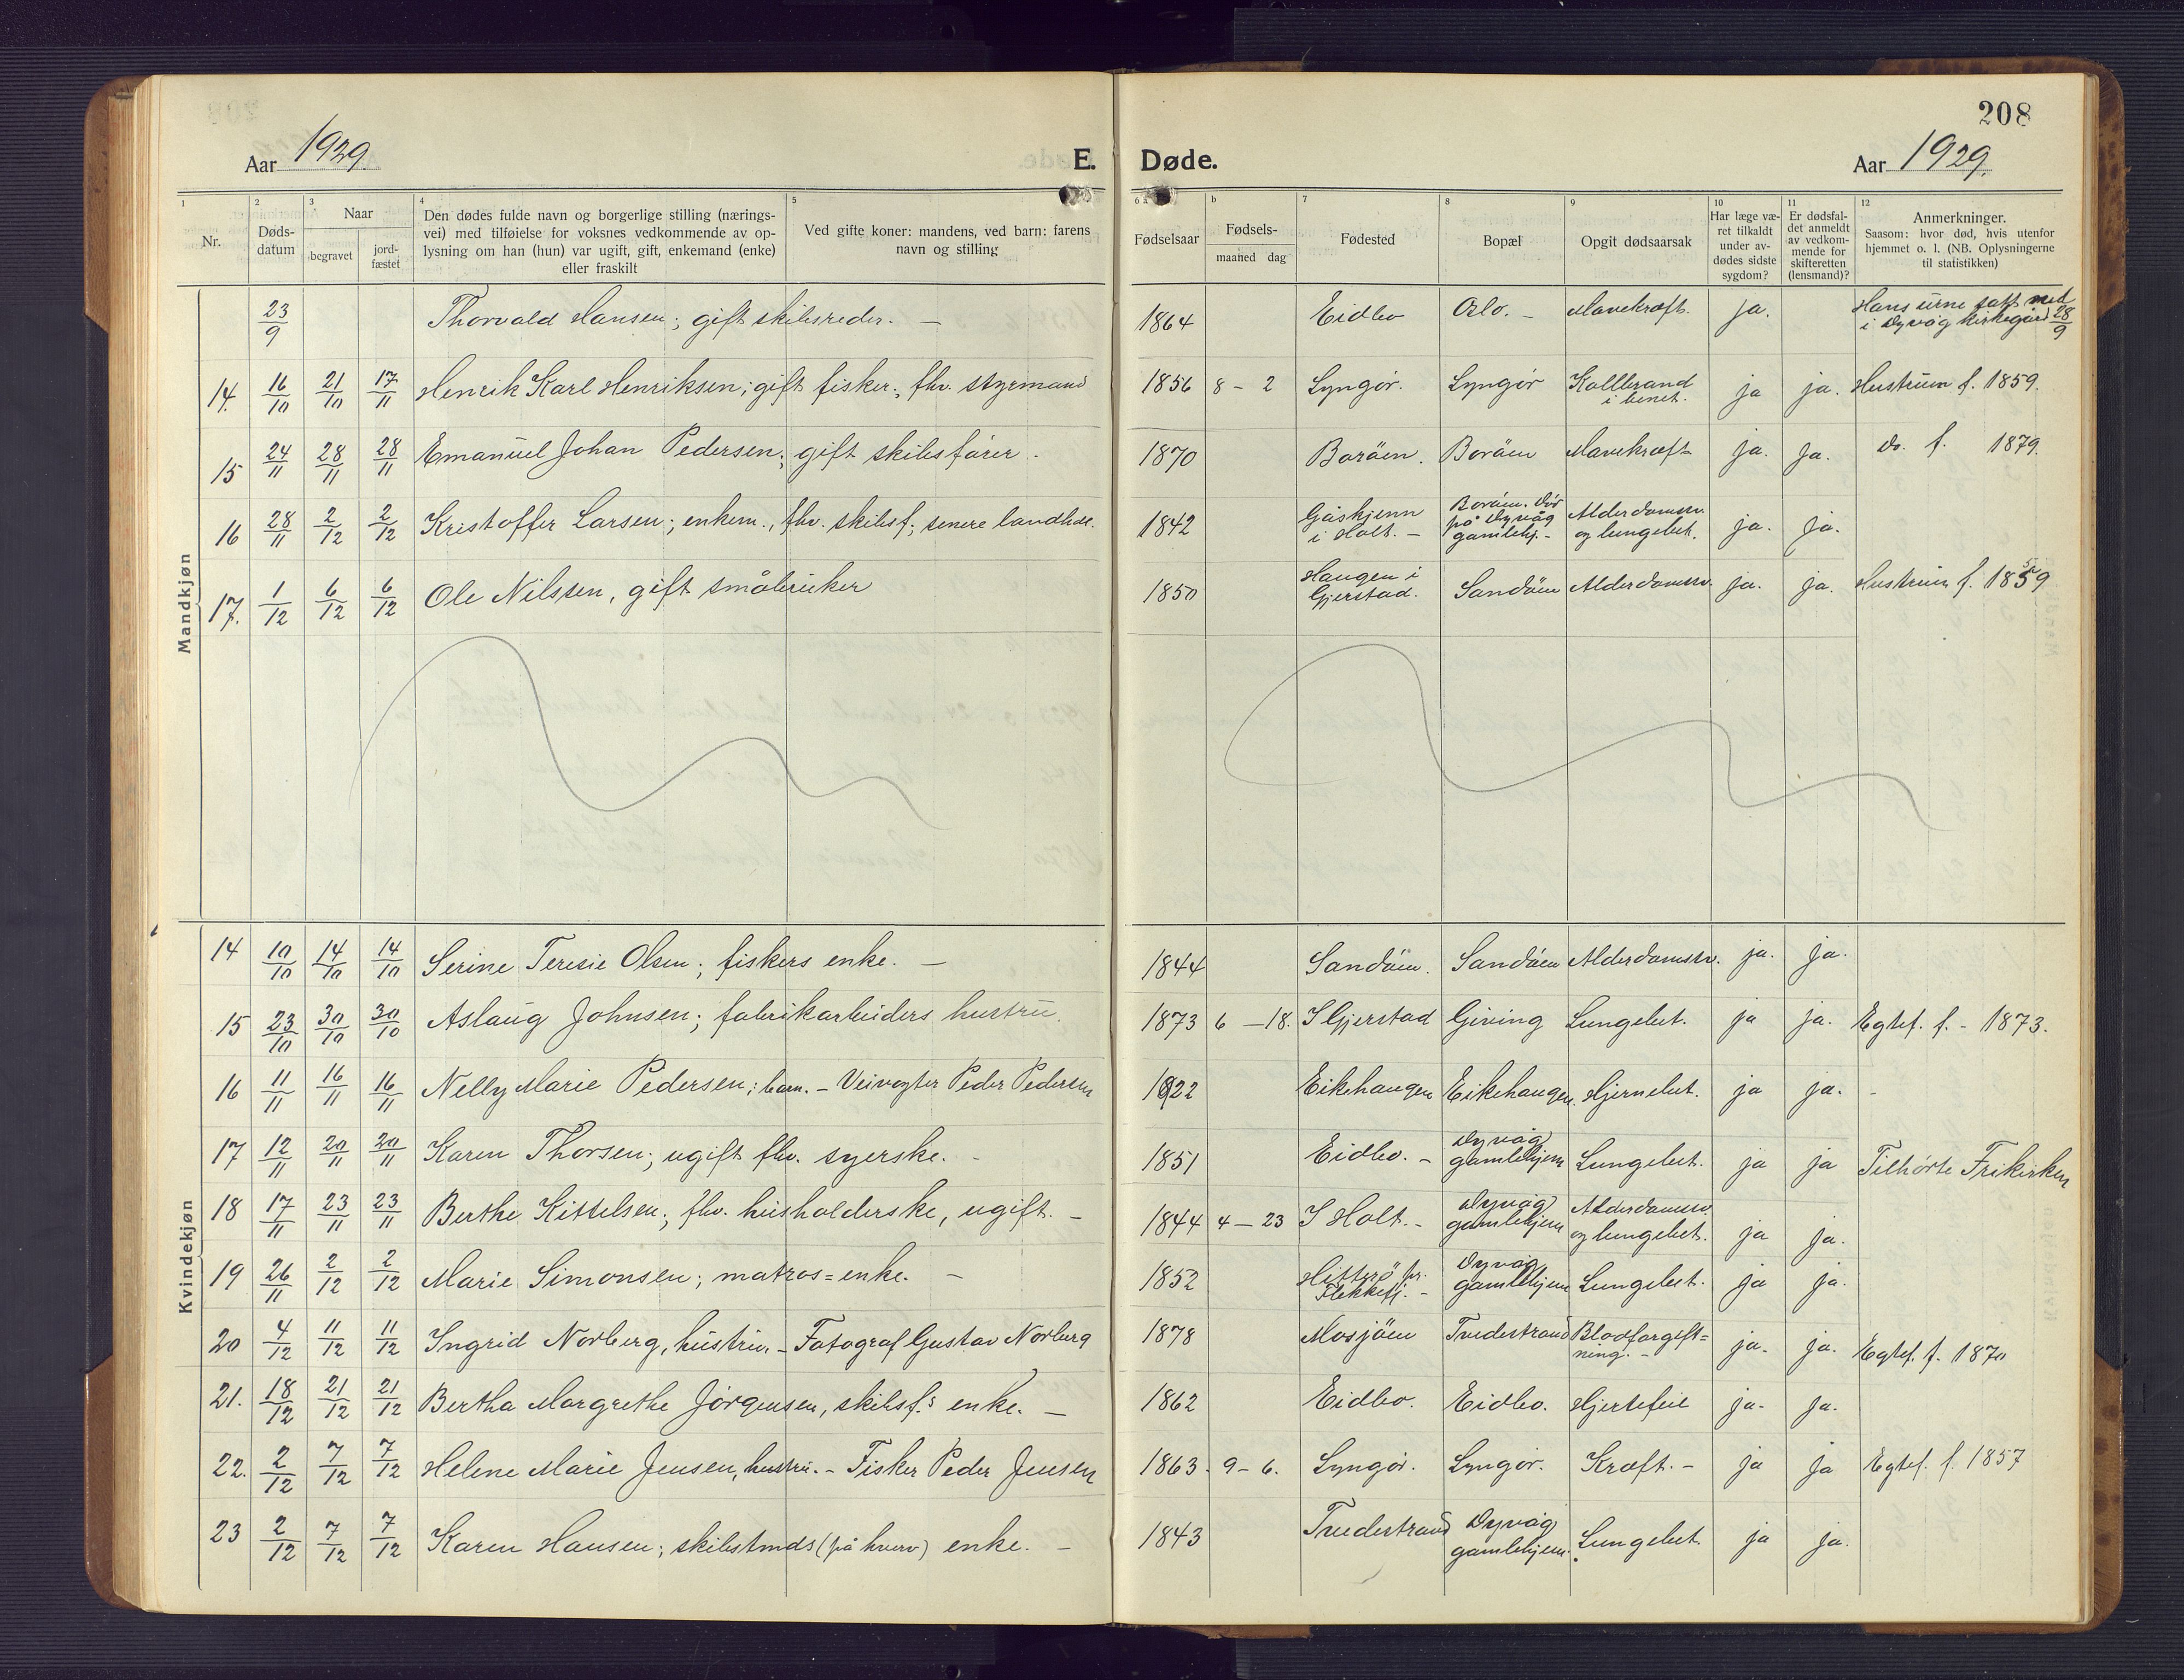 208
Aar 1929.
E. Døde.
Aar 1929.
1
Nr.
2
Døds-
datum
3
Naar
begravet
jord-
fæstet
4
Den dødes fulde navn og borgerlige stilling (nærings-
vei) med tilføielse for voksnes vedkommende av op-
lysning om han (hun) var ugift, gift, enkemand (enke)
eller fraskilt
5
Ved gifte koner: mandens, ved barn: farens
navn og stilling
6 a
Fødselsaar
b
Fødsels-
maaned dag
7
Fødested
8
Bopæl
9
Opgit dødsaarsak
10
Har læge væ-
ret tilkaldt
under av-
dødes sidste
sygdom?
11
Er dødsfal-
det anmeldt
av vedkom-
mende for
skifteretten
(lensmand)?
12
Anmerkninger.
Saasom: hvor død, hvis utenfor
hjemmet o. l. (NB. Oplysningerne
til statistikken)
Mandkjøn
23/9 Thorvald Hansen; gift skibsreder. — 1864 Eidbo Oslo. - Mavekræft. ja. Hans urne satt ned
i Dyvåg kirkegård 28/9
14. 16/10 21/10 17/11 Henrik Karl Henriksen; gift fisker; fhv. styrmand 1856 8 - 2 Lyngør. Lyngør Koldbrand
i benet. ja ja. Hustruen f. 1859.
15 24/11 28/11 28/11 Emanuel Johan Pedersen; gift skibsfører. 1870 Borøen. Borøen Mavekræft ja. ja. Do. f. 1879.
16 28/11 2/12 2/12 Kristoffer Larsen; enkem., fhv. skibsf; senere landhdl. 1842 Gåskjenn
i Holt. - Borøen. Dør
på Dyvåg
gamlehj. - Alderdomssv.
og lungebet. ja. ja.
17. 1/12 6/12 6/12 Ole Nilssen, gift småbruker 1850 Haugen i
Gjerstad. Sandøen Alderdomssv. ja. ja. Hustruen f. 1859
Kvindekjøn
14 10/10 14/10 14/10 Serine Teresie Olsen; fiskers enke. — 1844 Sandøen. Sandøen Alderdomssv. ja. ja.
15 23/10 30/10 30/10 Aslaug Johnsen; fabrikarbeiders hustru. 1873 6 - 18. I Gjerstad Giving Lungebet. ja ja. Egtef. f. - 1873.
16 11/11 16/11 16/11 Nelly Marie Pedersen; barn. - Veivogter Peder Pedersen 1922 Eikehaugen Eikehaugen Hjernebet. ja ja. -
17 12/11 20/11 20/11 Karen Thorsen; ugift fhv. syerske. - 1851 Eidbo. - Dyvåg
gamlehjem Lungebet. ja ja Tilhørte Frikirken
18 17/11 23/11 23/11 Berthe Kittelsen; fhv. husholderske, ugift. - 1844 4 - 23 I Holt. - Dyvåg
gamlehjem Alderdomssv.
og lungebet. ja ja.
19 26/11 2/12 2/12 Marie Simonsen; matros=enke. — 1852 Hitterø pr.
Flekkefj. - Dyvåg
gamlehjem Lungebet. ja ja.
20 4/12 11/12 11/12 Ingrid Norberg, hustru. - Fotograf Gustav Norberg 1878 Mosjøen Tvedestrand Blodforgift=
ning. - ja. ja. Egtef. f. 1870
21. 18/12 21/12 21/12 Bertha Margrethe Jørgensen, skibsf.s enke. — 1862 Eidbo. Eidbo. Hjertefeil ja. ja.
22. 2/12 7/12 7/12 Helene Marie Jensen, hustru. - Fisker Peder Jensen 1863. 9 - 6. Lyngør. Lyngør. Kræft. - ja ja Egtef. f. 1857
23 2/12 7/12 7/12 Karen Hansen; skibstmds (på hverv) enke. - 1843 Tvedestrand Dyvåg
gamlehjem. Lungebet. ja ja.